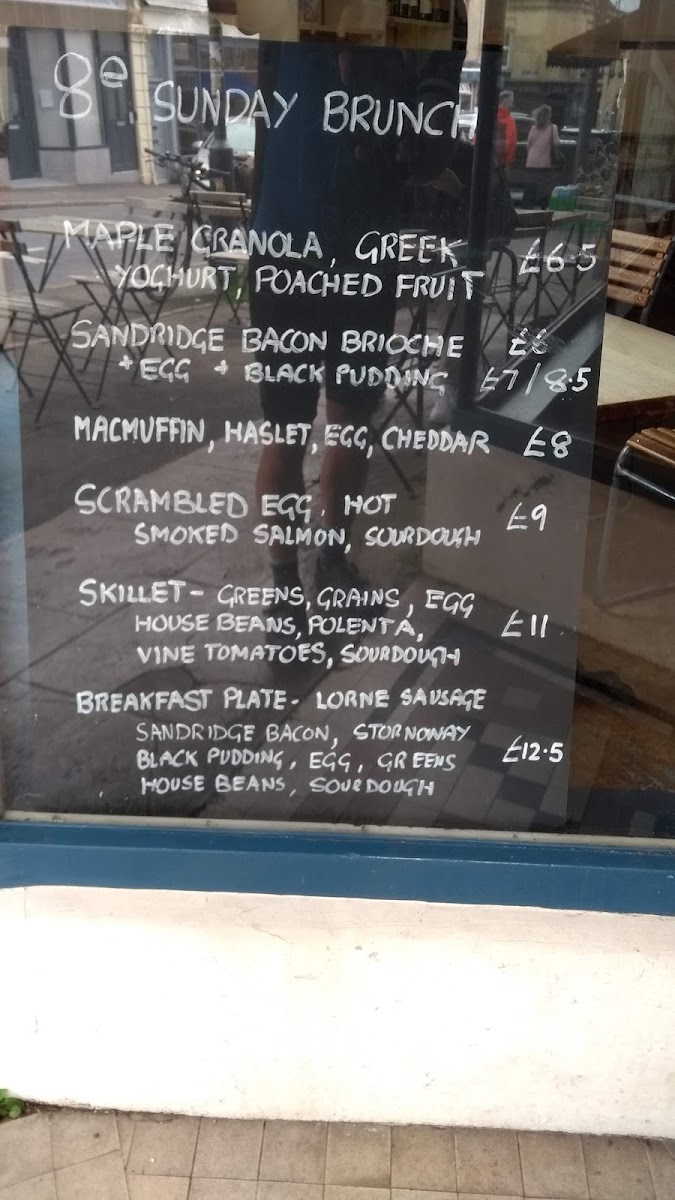 8e SUNDAY BRUNCH
MAPLE GRANOLA, GREEK £6.5
YOGHURT, POACHED FRUIT
SANDRIDGE BACON BRIOCHE £6
+ EGG + BLACK PUDDING £7/8.5
MACMUFFIN, HASLET, EGG, CHEDDAR £8
SCRAMBLED EGG, HOT
SMOKED SALMON, SOURDOUGH £9
SKILLET - GREENS, GRAINS, EGG
HOUSE BEANS, POLENTA, £11
VINE TOMATOES, SOURDOUGH
BREAKFAST PLATE - LORNE SAUSAGE
SANDRIDGE BACON, STORNOWAY
BLACK PUDDING, EGG, GREENS £12.5
HOUSE BEANS, SOURDOUGH